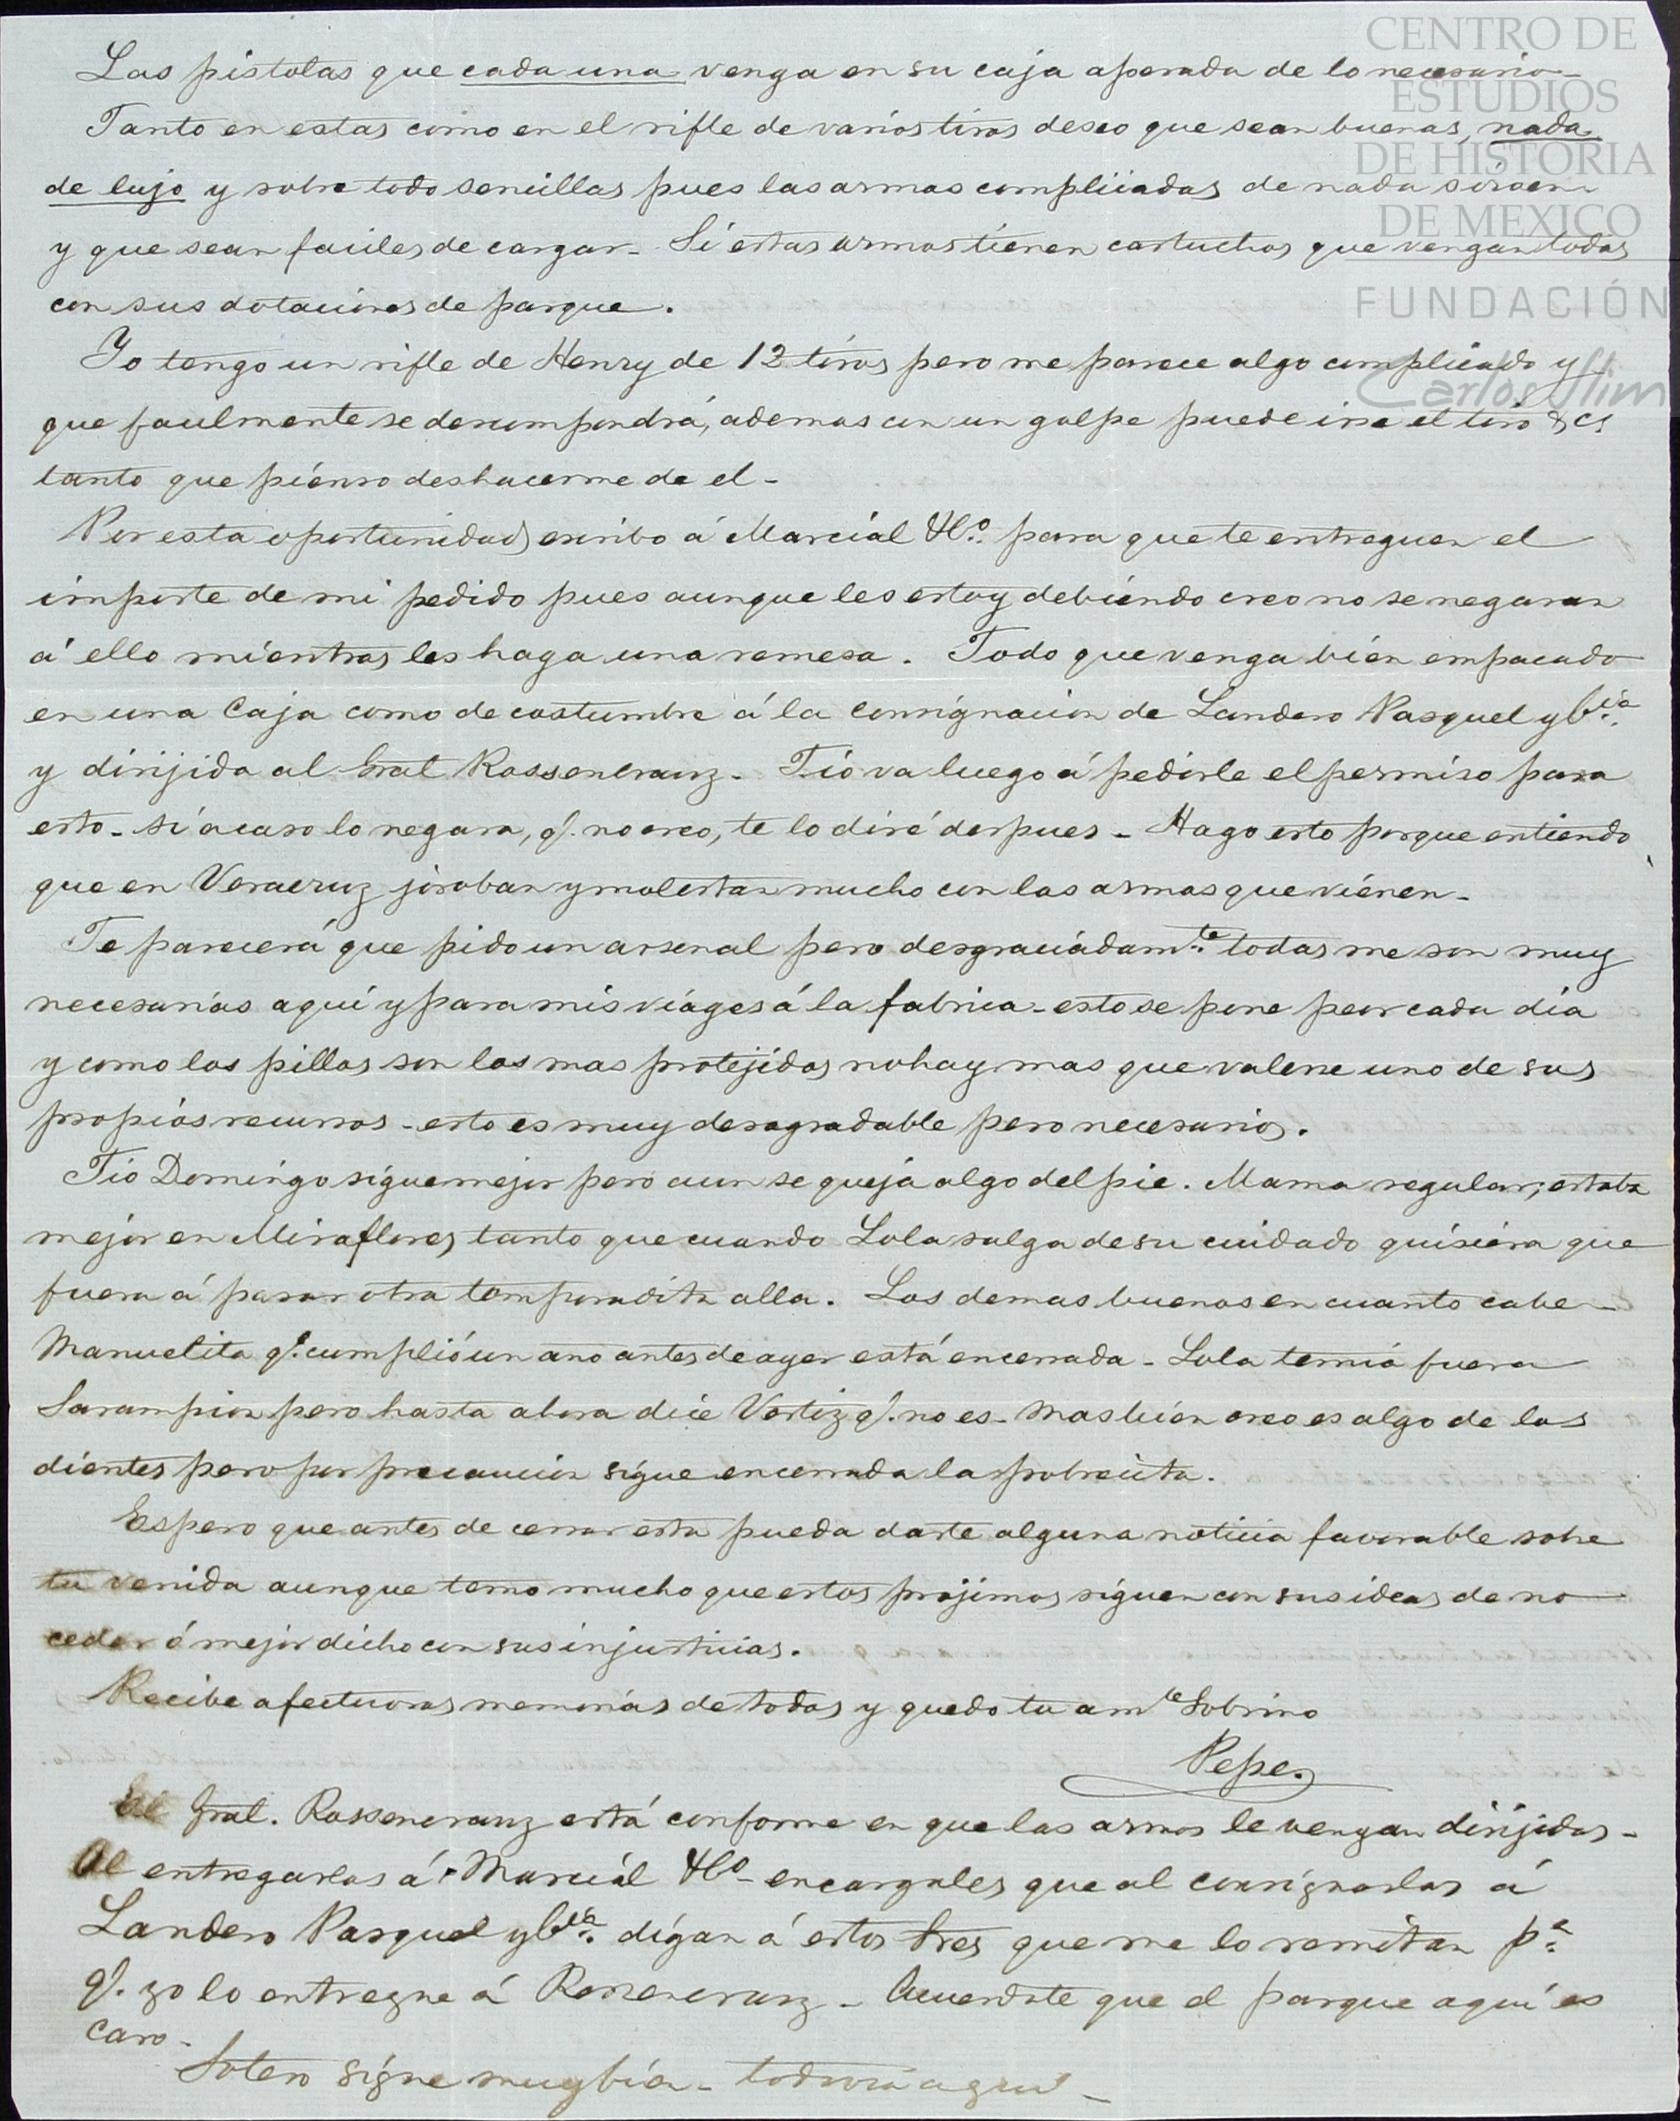 CENTRO DE
ESTUDIOS
DE HISTORIA
DE MEXICO
FUNDACIÓN
Carlos Slim
Las pistolas que cada una venga en su caja aperada de lo necesario-
Tanto en estas como en el rifle de varios tiros deseo que sean buenas, nada
de lujo y sobre todo sencillas pues las armas complicadas de nada sirven
y que sean faciles de cargar- Si estas armas tienen cartuchos que vengan todas
con sus dotaciones de parque.
Yo tengo un rifle de Henry de 12 tiros pero me parece algo complicado y
que facilmente se descompondrá, ademas con un golpe puede irse el tiro &c
tanto que pienso deshacerme de el-
Por esta oportunidad escribo á Marcial &Co. para que te entreguen el
importe de mi pedido pues aunque les estoy debiendo creo no se negaran
á ello mientras les haga una remesa. Todo que venga bien empacado
en una Caja como de costumbre á la consignacion de Landero Pasquel y Cía.
y dirijida al Gral Rossencranz- Tio va luego á pedirle el permiso para
esto- si acaso lo negara, q. no creo, te lo diré despues- Hago esto porque entiendo
que en Veracruz joroban y molestan mucho con las armas que vienen-
Te parecerá que pido un arsenal pero desgraciadamte. todas me son muy
necesarias aqui y para mis viages á la fabrica- esto se pone peor cada dia
y como los pillos son los mas protejidos no hay mas que valerse uno de sus
propios recursos- esto es muy desagradable pero necesario.
Tio Domingo sigue mejor pero aun se queja algo del pie. Mama regular, estaba
mejor en Miraflores tanto que cuando Lola salga de su cuidado quisiera que
fuera á pasar otra temporadita alla. Los demas buenos en cuanto cabe-
Manuelita q. cumplió un ano antes de ayer está encerrada- Lola temia fuera
Sarampion pero hasta ahora dice Vertiz q. no es- Mas bien creo es algo de los
dientes pero por precaucion sigue encerrada la pobrecita.
Espero que antes de cerrar esta pueda darte alguna noticia favorable sobre
tu venida aunque temo mucho que estos projimos siguen con sus ideas de no
ceder ó mejor dicho con sus injusticias.
Recibe afectuosas memorias de todos y quedo tu amte Sobrino
Pepe.
El Gral. Rossencranz está conforme en que las armas le vengan dirijidas-
Al entregarlas á Marcial &Co- encargales que al consignarlas á
Landero Pasquel y Cía. digan á estos Sres que me lo remitan pa.
q. yo lo entregue á Rossencranz- Acuerdate que el parque aqui es
caro-
Sotero sigue muy bien- todavia aqui-